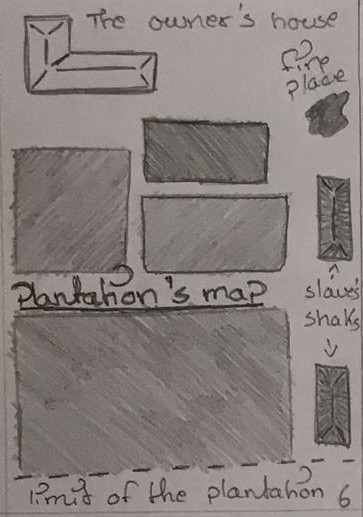 The owner's house
fire
place
Plantation's map
slaves'
shaks
limit of the plantation 6